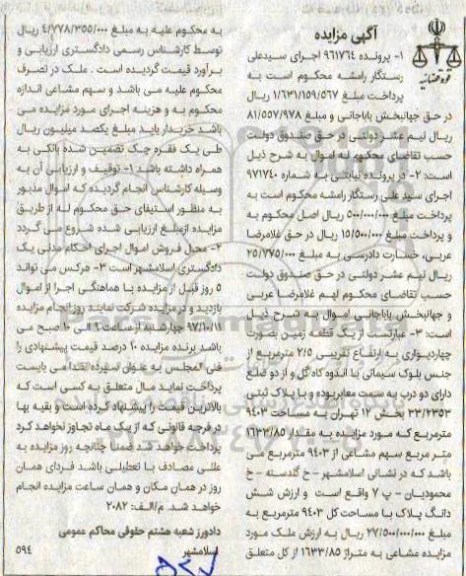 آگهی مزایده
قوه قضائیه
۱- پرونده ۹۶۱۷۶۴ اجرای سیدعلی
رستگار رامشه محکوم است به
پرداخت مبلغ ۱/۶۳۱/۱۵۹/۵۶۷ ریال
در حق جهانبخش باباجانی و مبلغ ۸۱/۵۵۷/۹۷۸
ریال نیم عشر دولتی در حق صندوق دولت
حسب تقاضای محکوم له اموال به شرح ذیل
است: ۲- در پرونده نیابتی به شماره ۹۷۱۷۴۰
اجرای سید علی رستگار رامشه محکوم است به
پرداخت مبلغ ۵۰۰/۰۰۰/۰۰۰ ریال اصل محکوم به
و پرداخت مبلغ ۱۵/۵۰۰/۰۰۰ ریال در حق غلامرضا
عربی، خسارت دادرسی به مبلغ ۲۵/۷۷۵/۰۰۰
ریال نیم عشر دولتی در حق صندوق دولت
حسب تقاضای محکوم لهم غلامرضا عربی
و جهانبخش باباجانی اموال به شرح ذیل
است: ۳- عبارتست از یک قطعه زمین بصورت
چهاردیواری به ارتفاع تقریبی ۲/۵ مترمربع از
جنس بلوک سیمانی با اندوه کاه گل و از دو ضلع
دارای دو درب به سمت معابر بوده و با پلاک ثبتی
۳۳/۲۳۵۳ بخش ۱۲ تهران به مساحت ۹۴۰۳
مترمربع که مورد مزایده به مقدار ۱۶۳۳/۸۵
متر مربع سهم مشاعی از ۹۴۰۳ مترمربع می
باشد که در نشانی اسلامشهر - خ گلدسته - خ
محمودیان - پ ۷ واقع است و ارزش شش
دانگ پلاک با مساحت کل ۹۴۰۳ مترمربع به
مبلغ ۲۷/۵۰۰/۰۰۰/۰۰۰ ریال به ارزش ملک مورد
مزایده مشاعی به متراژ ۱۶۳۳/۸۵ از کل متعلق
به محکوم علیه به مبلغ ۴/۷۷۸/۳۵۵/۰۰۰ ریال
توسط کارشناس رسمی دادگستری ارزیابی و
برآورد قیمت گردیده است . ملک در تصرف
محکوم علیه می باشد و سهم مشاعی اندازه
محکوم به و هزینه اجرای مورد مزایده می
باشد خریدار باید مبلغ یکصد میلیون ریال
طی یک فقره چک تضمین شده بانکی به
همراه داشته باشد ۱- توقیف و ارزیابی آن به
وسیله کارشناس انجام گردیده که اموال مذبور
به منظور استیفای حق محکوم له از طریق
مزایده از مبلغ ارزیابی شده شروع می گردد
۲- محل فروش اموال اجرای احکام مدنی یک
دادگستری اسلامشهر است ۳- هرکس می تواند
۵ روز قبل از مزایده با هماهنگی اجرا از اموال
بازدید و در مزایده شرکت نمایند روز انجام مزایده
۹۷/۱۰/۱۱ چهارشنبه از ساعت ۹ الی ۱۰ صبح می
باشد برنده مزایده ۱۰ درصد قیمت پیشنهادی را
فی المجلس به عنوان سپرده نقدا می بایست
پرداخت نماید مال متعلق به کسی است که
بالاترین قیمت را پیشنهاد کرده است و بقیه بها
در فرجه قانونی که از یک ماه تجاوز نخواهد کرد
پرداخت خواهد شد ضمنا چنانچه روز مزایده به
عللی مصادف با تعطیلی باشد فردای همان
روز در همان مکان و همان ساعت مزایده انجام
خواهد شد. م/الف: ۲۰۸۲
دادورز شعبه هشتم حقوقی محاکم عمومی
اسلامشهر
۵۹۴